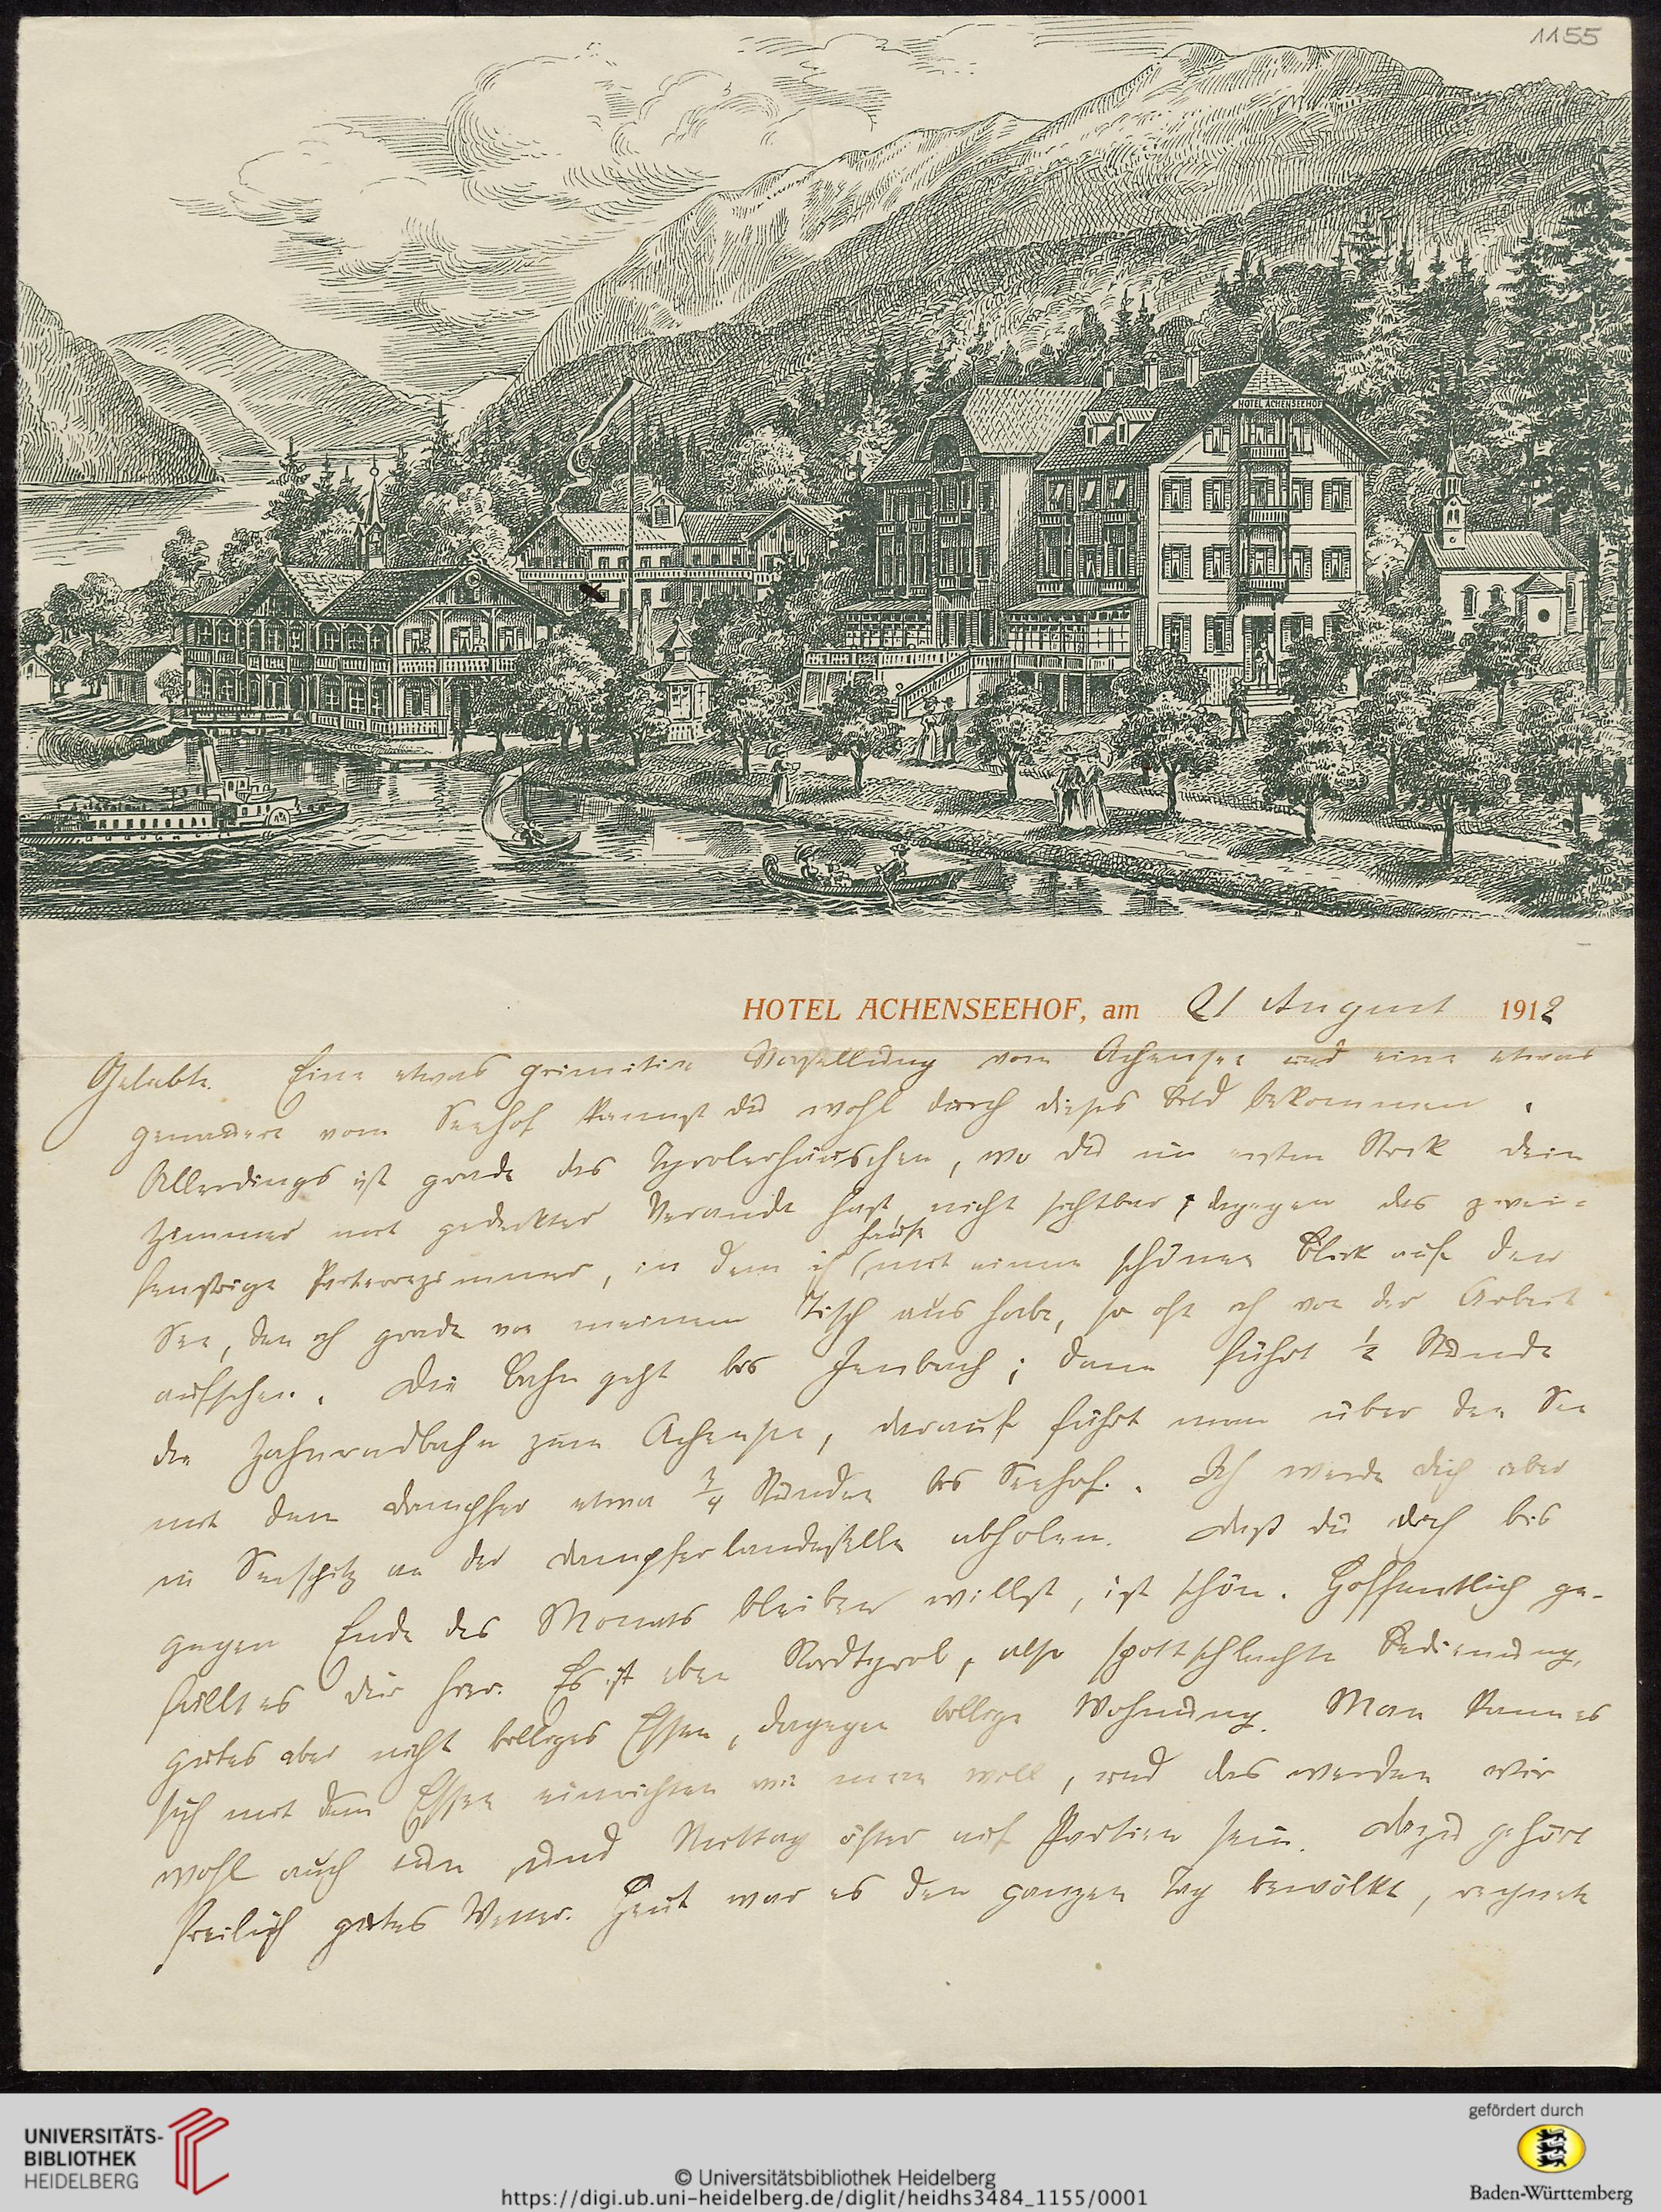 1155
HOTEL ACHENSEEHOF
HOTEL ACHENSEEHOF, am 21 August 1912
Geliebte. Eine etwas primitive Vorstellung vom Achensee und eine etwas
genauere vom Seehof kannst du wohl durch dieses Bild bekommen.
Allerdings ist grade das Tyrolerhäuschen, wo du im ersten Stock dein
Zimmer mit gedeckter Veranda hast, nicht sichtbar, dagegen das zwei-
fenstrige Parterrezimmer, in dem ich hause (mit einem schönen Blick auf den
See, den ich grade von meinem Tisch aus habe, so oft ich von der Arbeit
aufsehe. Die Bahn geht bis Jenbach; dann führt ½ Stunde
die Zahnradbahn zum Achensee, darauf führt man über den See
mit dem Dampfer etwa ¾ Stunden bis Seehof. Ich werde dich aber
in Seespitz an der Dampferlandestelle abholen. Daß du doch bis
gegen Ende des Monats bleiben willst, ist schön. Hoffentlich ge-
fällt es dir hier. Es ist eben Nordtyrol, also spottschlechte Bedienung,
gutes aber nicht billiges Essen, dagegen billige Wohnung. Man kann es
sich mit dem Essen einrichten wie man will, und das werden wir
wohl auch tun und Mittag öfter auf Partien sein. Dazu gehört
freilich gutes Wetter. Heut war es den ganzen Tag bewölkt, regnete
UNIVERSITÄTS-
BIBLIOTHEK
HEIDELBERG
© Universitätsbibliothek Heidelberg
https://digi.ub.uni-heidelberg.de/diglit/heidhs3484_1155/0001
gefördert durch
Baden-Württemberg